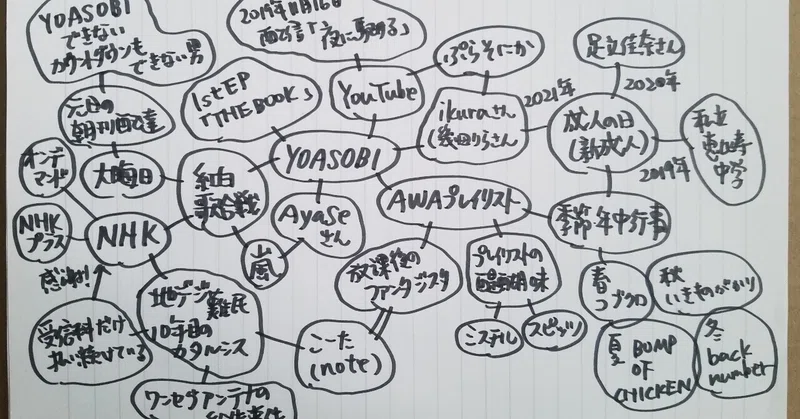 YOASOBI
できない
カウントダウンも
できない男
2019年11月16日
配信「夜に駆ける」
ぷらそにか
足立佳奈さん
元日の
朝刊配達
1stEP
「THE BOOK」
YouTube
ikuraさん
(幾田りらさん)
2021年
2020年
成人の日
(新成人)
2019年
私立
恵比寿
中学
オンデ
マンド
大晦日
紅白
歌合戦
YOASOBI
Ayase
さん
AWAプレイリスト
季節・年中行事
NHK
プラス
NHK
嵐
放課後の
ファンタジスタ
プレイリストの
醍醐味
春
コブクロ
秋
いきものがかり
感謝!
地デジ難民
10年目の
カタルシス
受信料だけ
払い続けている
こーた
(note)
ミスチル
スピッツ
夏 BUMP
OF
CHICKEN
冬
back
number
ワンセグアンテナの